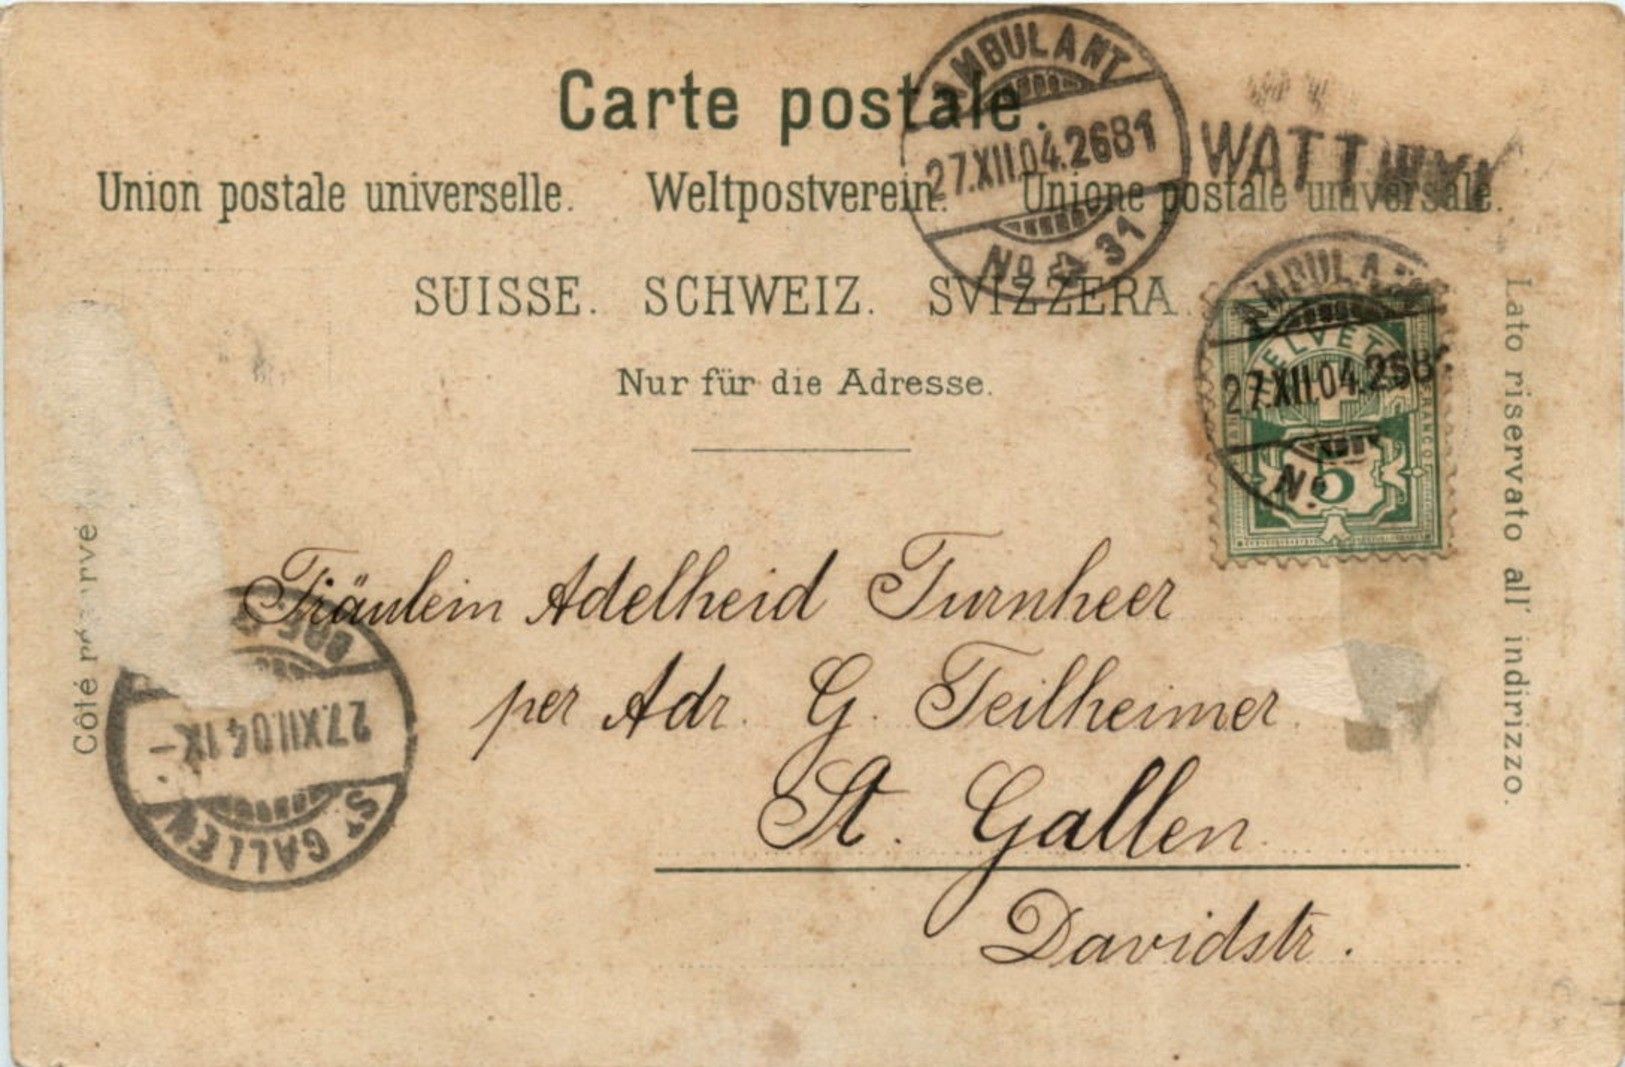 Carte postale.
Union postale universelle. Weltpostverein. Unione postale universale.
SUISSE. SCHWEIZ. SVIZZERA
Nur für die Adresse.
AMBULANT
27.XII.04.2681
No 31
WATTWYL
AMBULANT
27.XII.04.268
No
HELVETIA
FRANCO
5
Fräulein Adelheid Turnheer
per Adr. G. Teilheimer
St. Gallen
Davidstr.
ST. GALLEN
27.XII.04.IX-
Côté réservé
Lato riservato all' indirizzo.